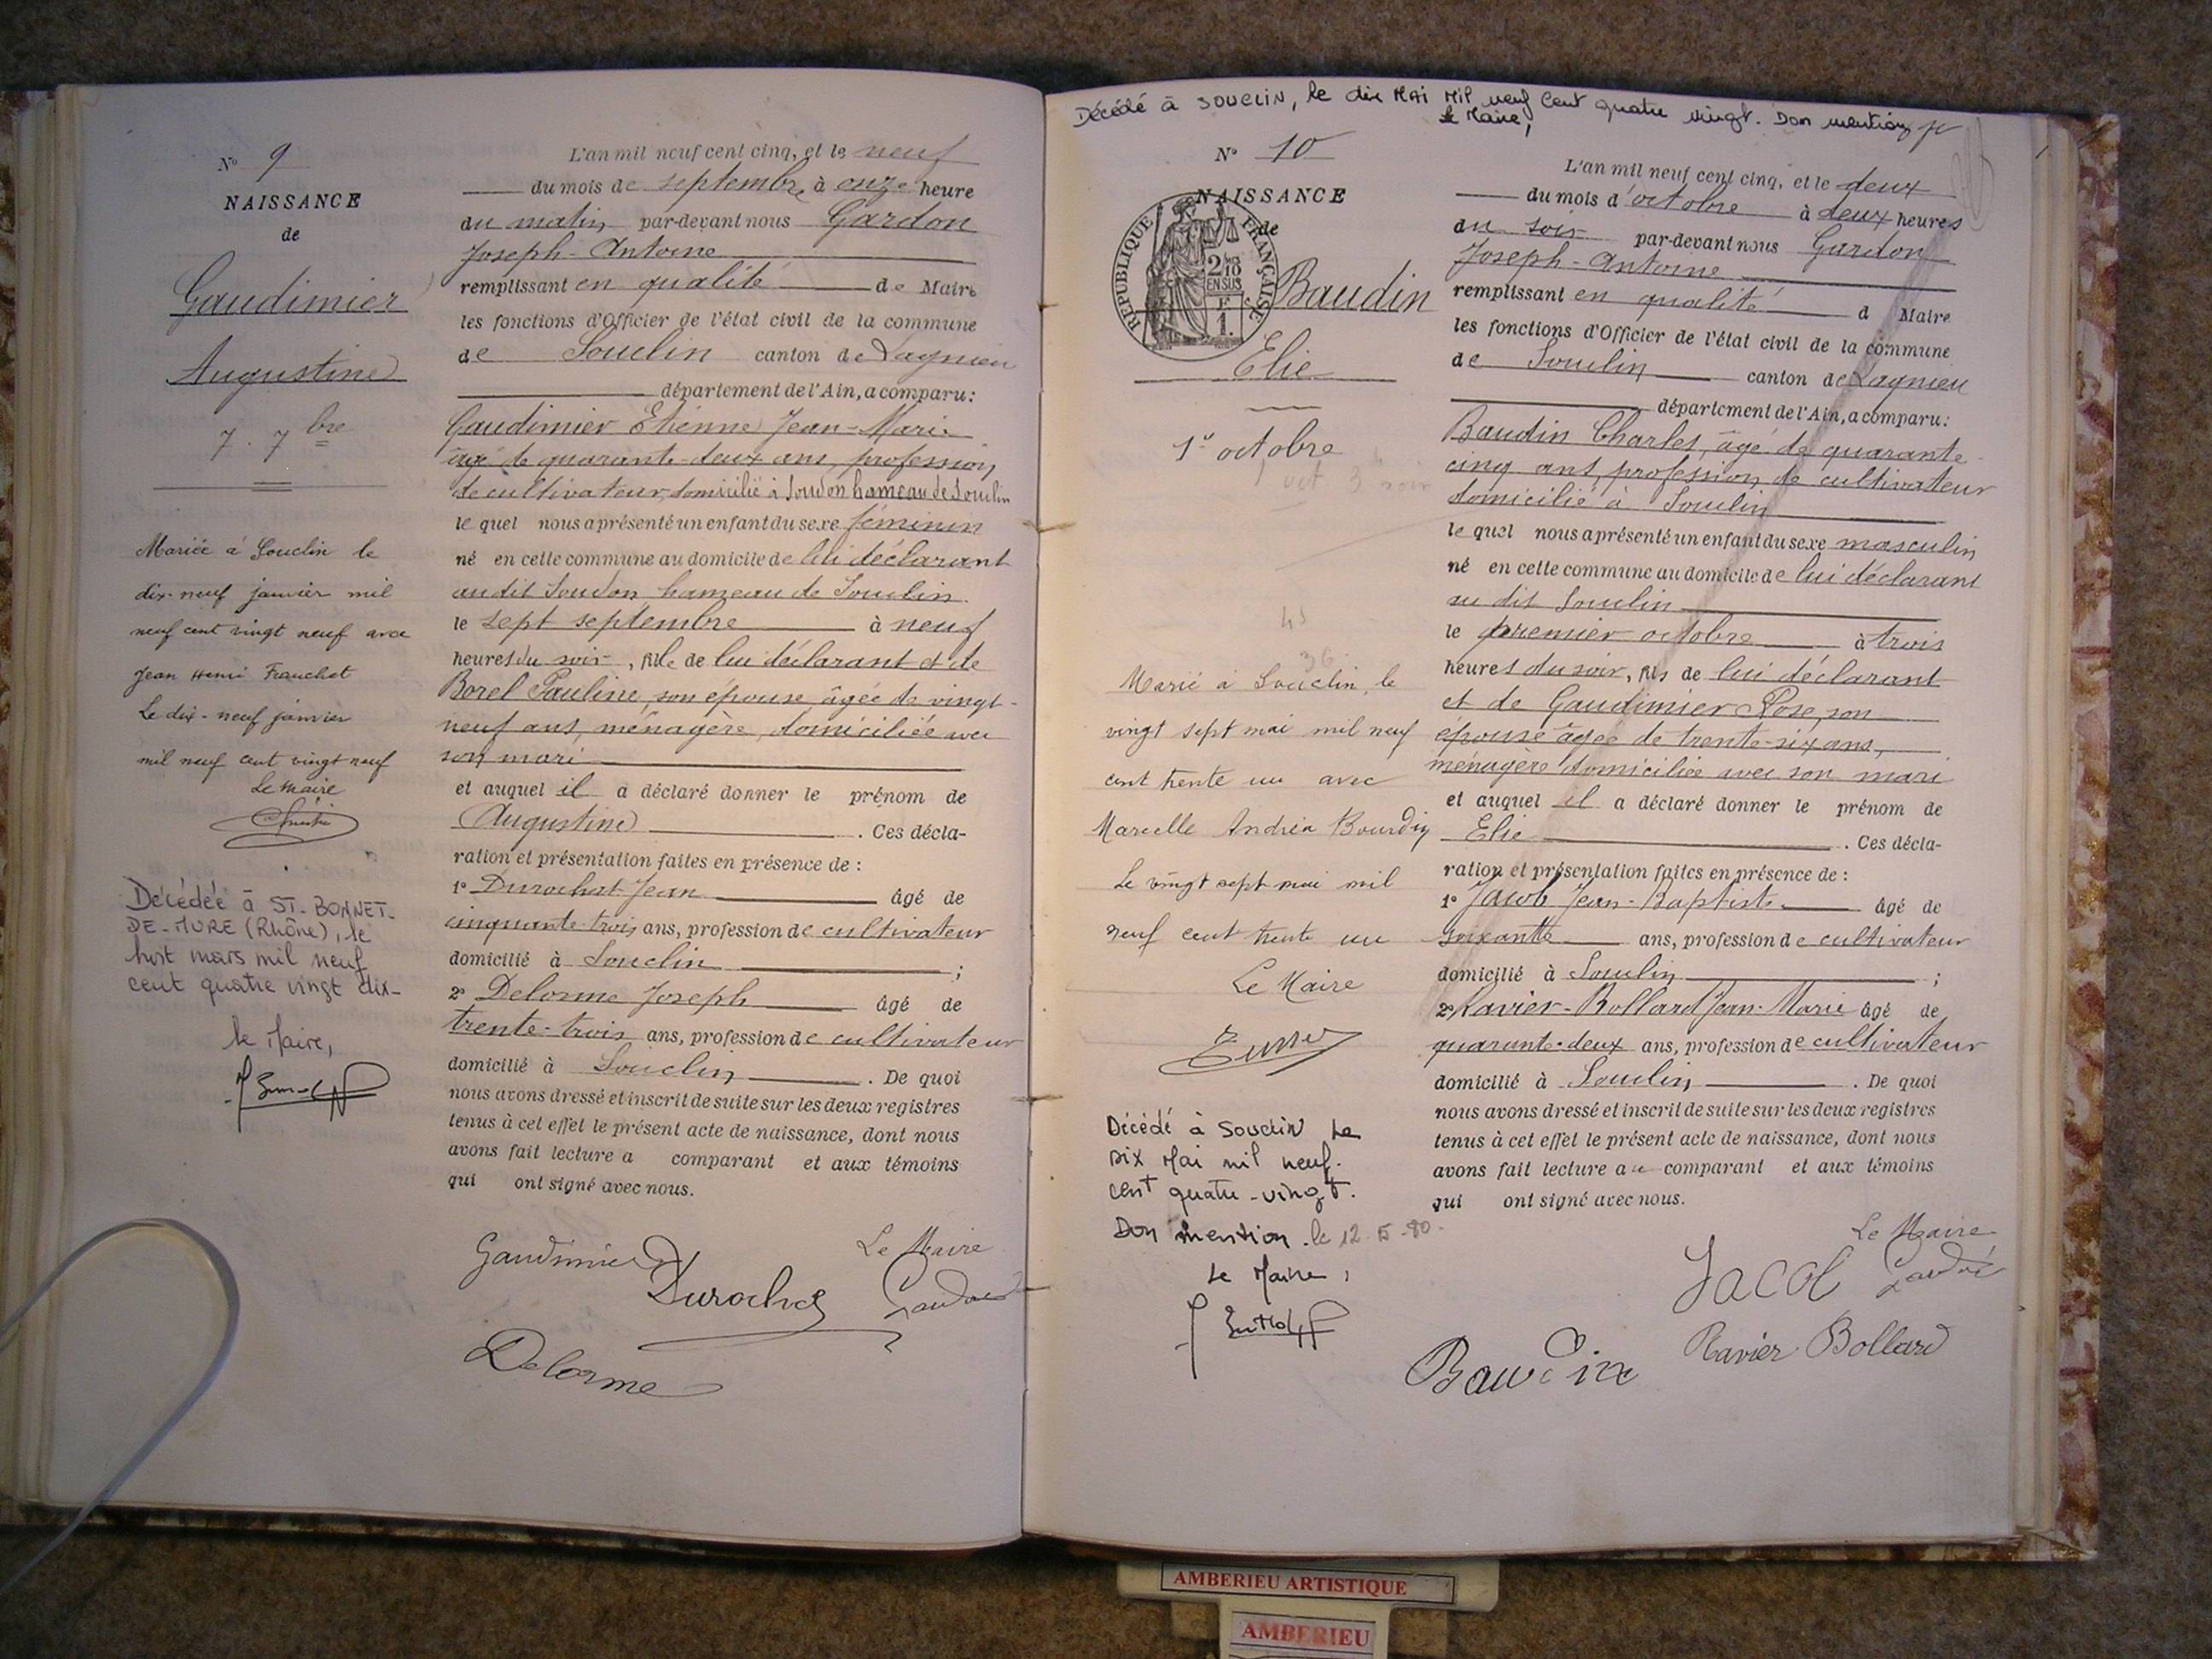 N° 9
NAISSANCE
de
Gaudimier
Augustine
7. 7bre
Mariée à Souclin le
dix-neuf janvier mil
neuf cent vingt neuf avec
Jean Henri Franchet
Le dix-neuf janvier
mil neuf cent vingt neuf
Le Maire
Décédée à ST-BONNET-
DE-MURE (Rhône), le
huit mars mil neuf
cent quatre vingt dix-
le Maire,
L'an mil neuf cent cinq, et le neuf
du mois de septembre à onze heure
du matin par-devant nous Gardon
Joseph-Antoine
remplissant en qualité de Maire
les fonctions d'Officier de l'état civil de la commune
de Souclin canton de Lagnieu
département de l'Ain, a comparu:
Gaudimier Etienne Jean-Marie
âgé de quarante-deux ans, profession
de cultivateur, domicilié à Soudon hameau de Souclin
lequel nous a présenté un enfant du sexe féminin
né en cette commune au domicile de lui déclarant
au dit Soudon hameau de Souclin.
le sept septembre à neuf
heures du soir, fille de lui déclarant et de
Borel Pauline, son épouse âgée de vingt-
neuf ans, ménagère, domiciliée avec
son mari
et auquel il a déclaré donner le prénom de
Augustine . Ces décla-
ration et présentation faites en présence de :
1° Durochat Jean âgé de
cinquante-trois ans, profession de cultivateur
domicilié à Souclin ;
2° Delorme Joseph âgé de
trente-trois ans, profession de cultivateur
domicilié à Souclin . De quoi
nous avons dressé et inscrit de suite sur les deux registres
tenus à cet effet le présent acte de naissance, dont nous
avons fait lecture a comparant et aux témoins
qui ont signé avec nous.
Gaudimier Le Maire
Durochat Gardon
Delorme
Décédé à SOUCLIN, le dix MAI Mil neuf Cent quatre vingt. Don mention
le Maire,
N° 10
NAISSANCE
de
REPUBLIQUE FRANÇAISE
2/10
EN SUS
1.
Baudin
Elie
1er octobre
Marié à Souclin, le
vingt sept mai mil neuf
cent trente un avec
Marcelle Andréa Bourdin
Le vingt sept mai mil
neuf cent trente un
Le Maire
Décédé à Souclin Le
Dix Mai mil neuf.
cent quatre-vingt.
Don mention. le 12-5-80-
Le Maire,
L'an mil neuf cent cinq, et le deux
du mois d'octobre à deux heures
du soir par-devant nous Gardon
Joseph-Antoine
remplissant en qualité d Maire
les fonctions d'Officier de l'état civil de la commune
de Souclin canton de Lagnieu
département de l'Ain, a comparu:
Baudin Charles, âgé de quarante-
cinq ans, profession de cultivateur
domicilié à Souclin
lequel nous a présenté un enfant du sexe masculin
né en cette commune au domicile de lui déclarant
au dit Souclin
le premier octobre à trois
heures du soir, fils de lui déclarant
et de Gaudimier Rose, son
épouse âgée de trente-six ans,
ménagère domiciliée avec son mari
et auquel il a déclaré donner le prénom de
Elie . Ces décla-
ration et présentation faites en présence de :
1° Jacob Jean-Baptiste âgé de
soixante ans, profession de cultivateur
domicilié à Souclin ;
2° Ravier-Bollard Jean-Marie âgé de
quarante-deux ans, profession de cultivateur
domicilié à Souclin . De quoi
nous avons dressé et inscrit de suite sur les deux registres
tenus à cet effet le présent acte de naissance, dont nous
avons fait lecture au comparant et aux témoins
qui ont signé avec nous.
Le Maire
Jacob Gardon
Baudin Ravier Bollard
AMBERIEU ARTISTIQUE
AMBERIEU